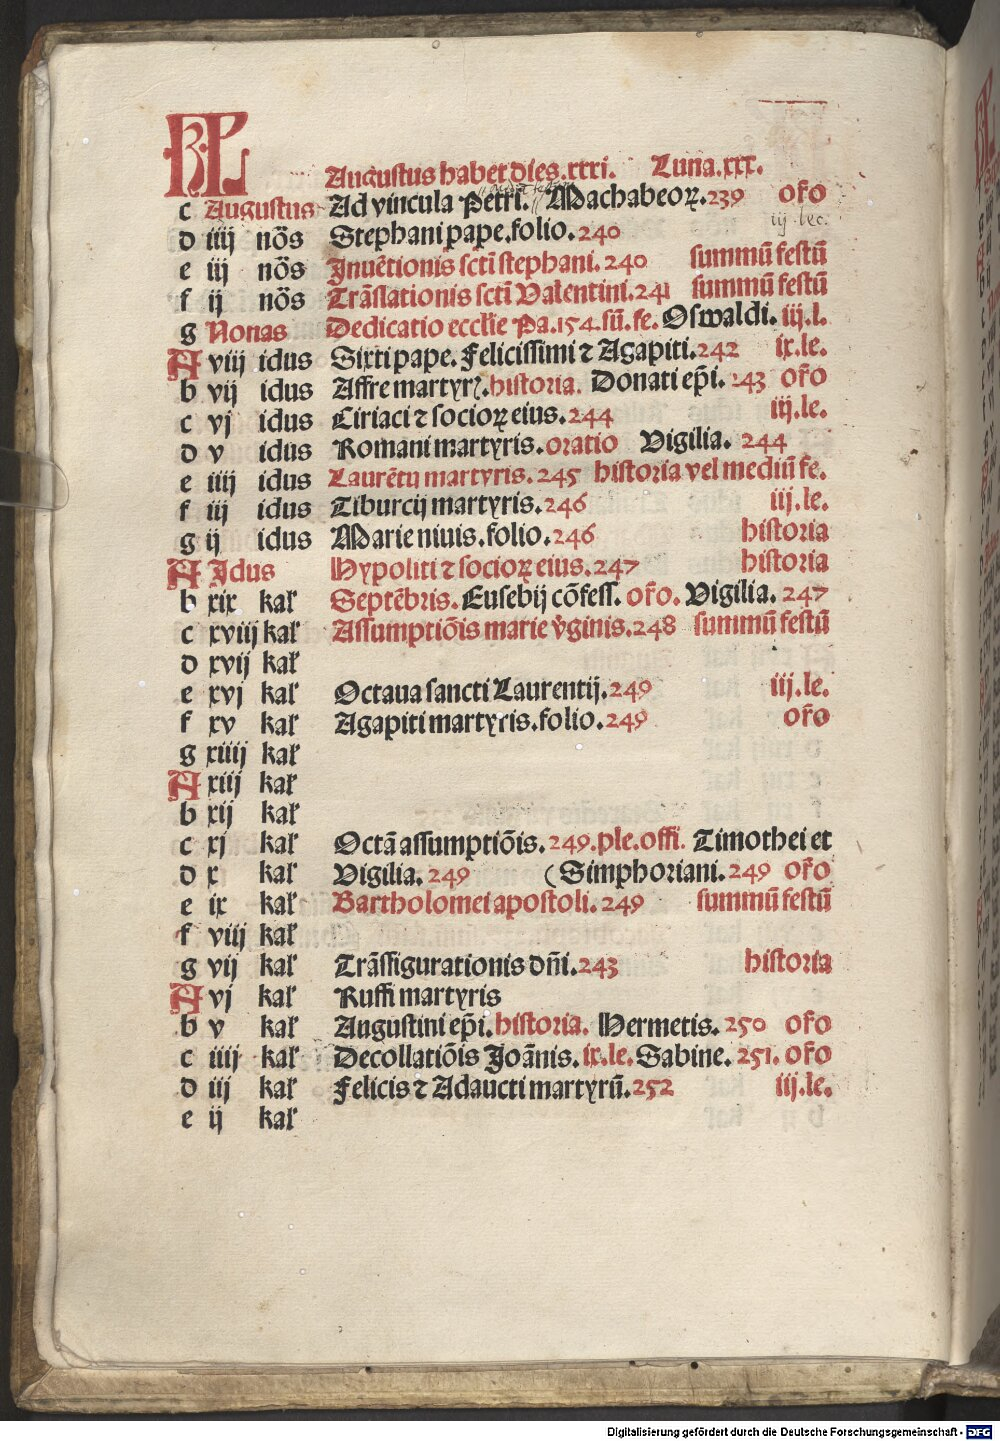 KL Augustus habet dies.xxxi. Luna.xxx.
c Augustus Ad vincula Petri. Machabeoꝝ.239 oro
iij lec.
d iiij nōs Stephani pape.folio.240
e iij nōs Inuētionis scti stephani.240 summū festū
f ij nōs Trāslationis scti Valentini.241 summū festū
g Nonas Dedicatio ecclie Pa.154.sū.fe. Oswaldi.iij.l.
A viij idus Sixti pape. Felicissimi ⁊ Agapiti.242 ix.le.
b vij idus Affre martyrꝭ.historia. Donati epi. 243 oro
c vj idus Ciriaci ⁊ socioꝝ eius.244 iij.le.
d v idus Romani martyris.oratio Vigilia. 244
e iiij idus Laurētij martyris.245 historia vel mediū fe.
f iij idus Tiburcij martyris.246 iij.le.
g ij idus Marie niuis.folio.246 historia
A Idus Hypoliti ⁊ socioꝝ eius.247 historia
b xix kal Septēbris. Eusebij cōfess. oro. Vigilia. 247
c xviij kal Assumptiōis marie v̄ginis.248 summū festū
d xvij kal
e xvj kal Octaua sancti Laurentij.249 iij.le.
f xv kal Agapiti martyris.folio.249 oro
g xiiij kal
A xiij kal
b xij kal
c xj kal Octā assumptiōis.249.ple.offi. Timothei et
d x kal Vigilia.249 (Simphoriani.249 oro
e ix kal Bartholomei apostoli.249 summū festū
f viij kal
g vij kal Trāsfigurationis dn̄i.243 historia
A vj kal Ruffi martyris
b v kal Augustini epi.historia. Hermetis.250 oro
c iiij kal Decollatiōis Joānis.ix.le.Sabine.251.oro
d iij kal Felicis ⁊ Adaucti martyrū.252 iij.le.
e ij kal
Digitalisierung gefördert durch die Deutsche Forschungsgemeinschaft - DFG